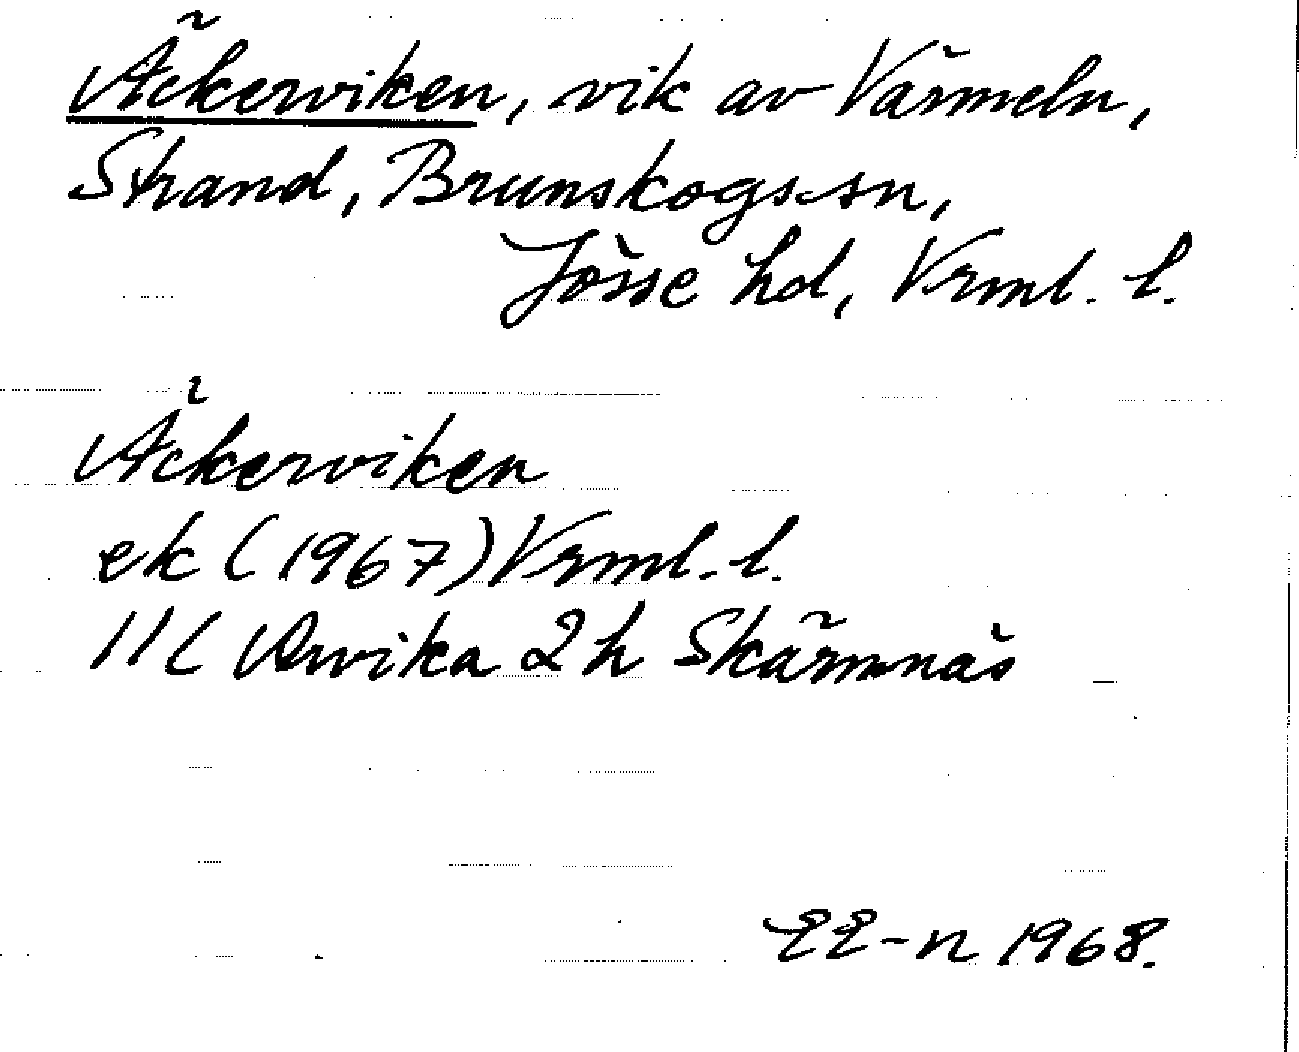 Äckerviken, vik av Värmeln,
Strand, Brunskogs sn,
Jösse hd, Vrml. l.
Äckerviken
ek (1967) Vrml. l.
11C Arvika 2h Skärmnäs
EE-n 1968.